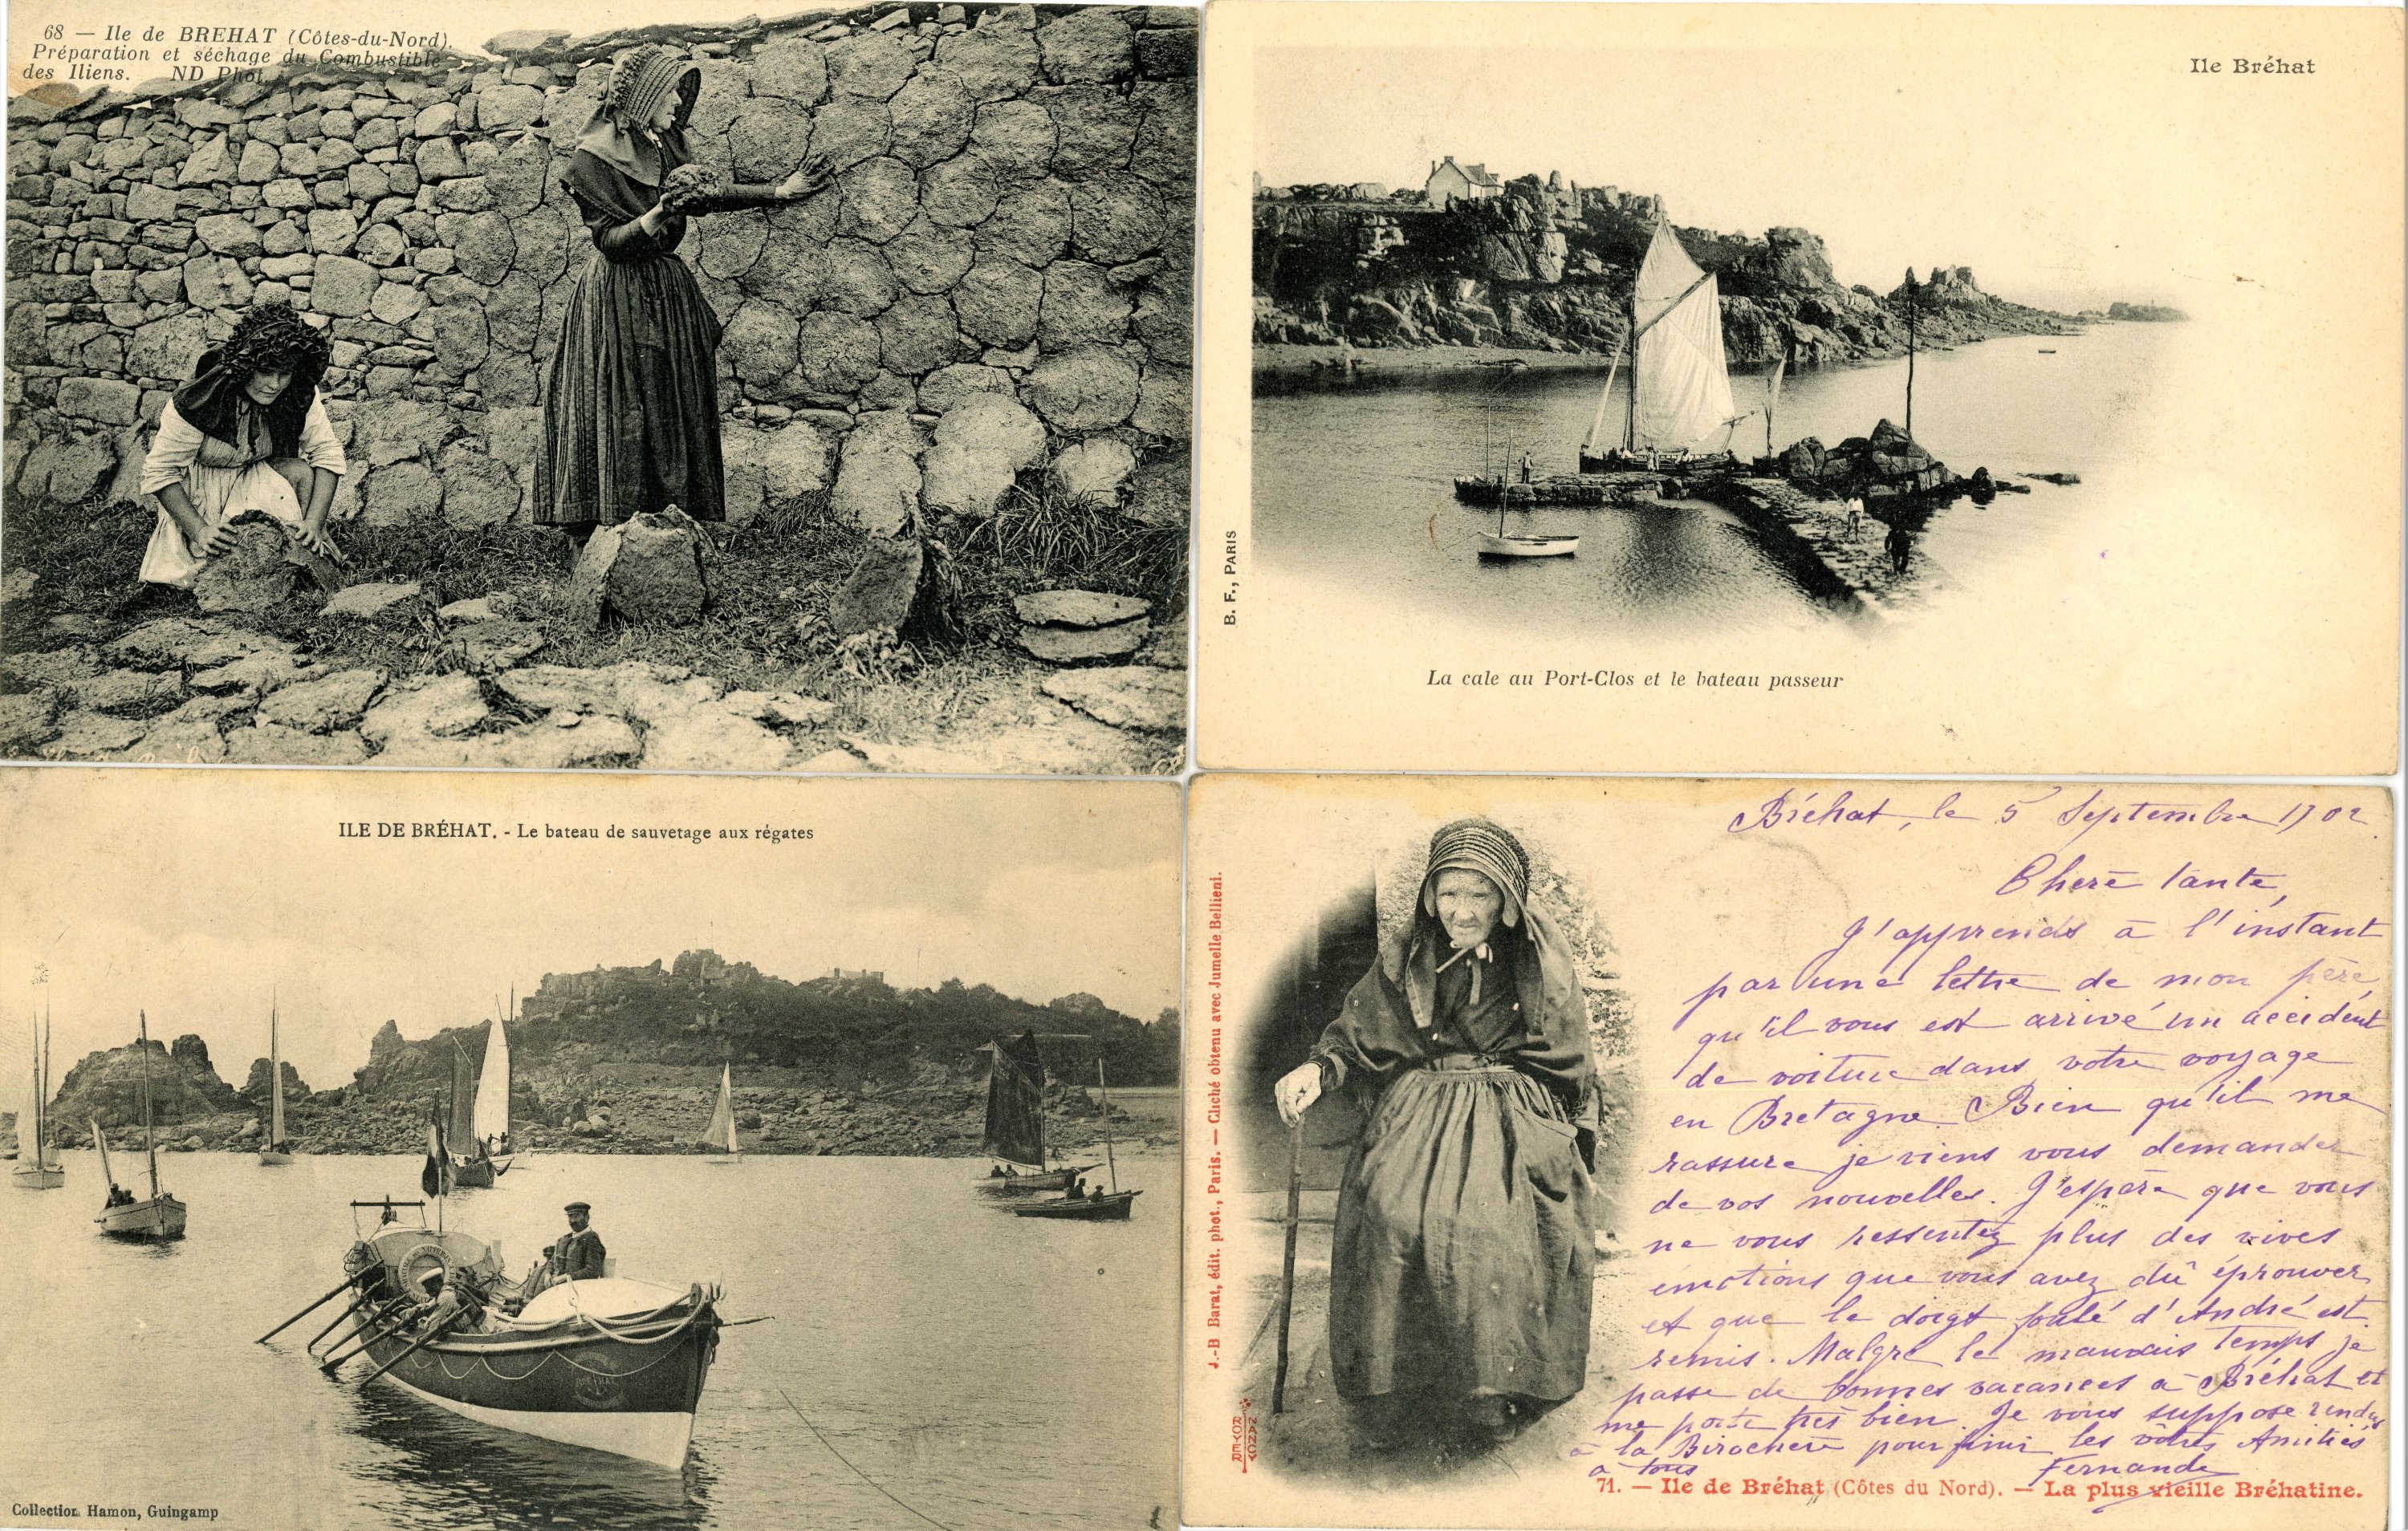 68 — Ile de BREHAT (Côtes-du-Nord).
Préparation et séchage du Combustible
des Iliens. ND Phot.
Ile Bréhat
B. F., PARIS
La cale au Port-Clos et le bateau passeur
ILE DE BRÉHAT. - Le bateau de sauvetage aux régates
Collection Hamon, Guingamp
J.-B Barat, édit. phot., Paris. — Cliché obtenu avec Jumelle Bellieni.
ROYER
NANCY
Bréhat, le 5 Septembre 1902
Chère tante,
J'apprends à l'instant
par une lettre de mon père,
qu'il vous est arrivé un accident
de voiture dans votre voyage
en Bretagne. Bien qu'il me
rassure je viens vous demander
de vos nouvelles. J'espère que vous
ne vous ressentez plus des vives
émotions que vous avez dû éprouver
et que le doigt foulé d'André est
remis. Malgré le mauvais temps je
passe de bonnes vacances à Bréhat et
me porte très bien. Je vous suppose rendus
à la pour finir les vôtres Amitiés
à tous Fernande
71. — Ile de Bréhat (Côtes du Nord). — La plus vieille Bréhatine.